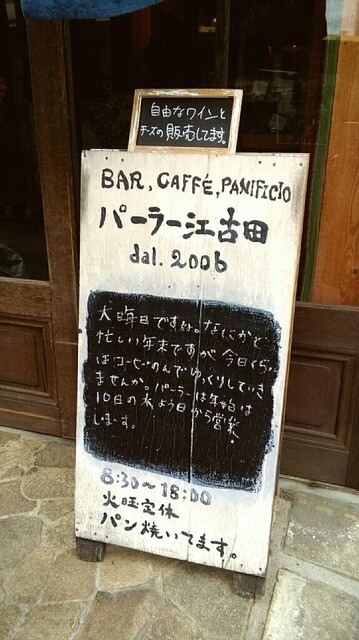 自由なワインと
チーズの販売してます。
BAR, CAFFÉ, PANIFICIO
パーラー江古田
dal. 2006
大晦日ですね。なにかと
忙しい年末ですが今日くらい
はコーヒーのんでゆっくりしていき
ませんか。パーラーは年始は
10日の木よう日から営業
します。
8:30~18:00
火曜定休
パン焼いてます。